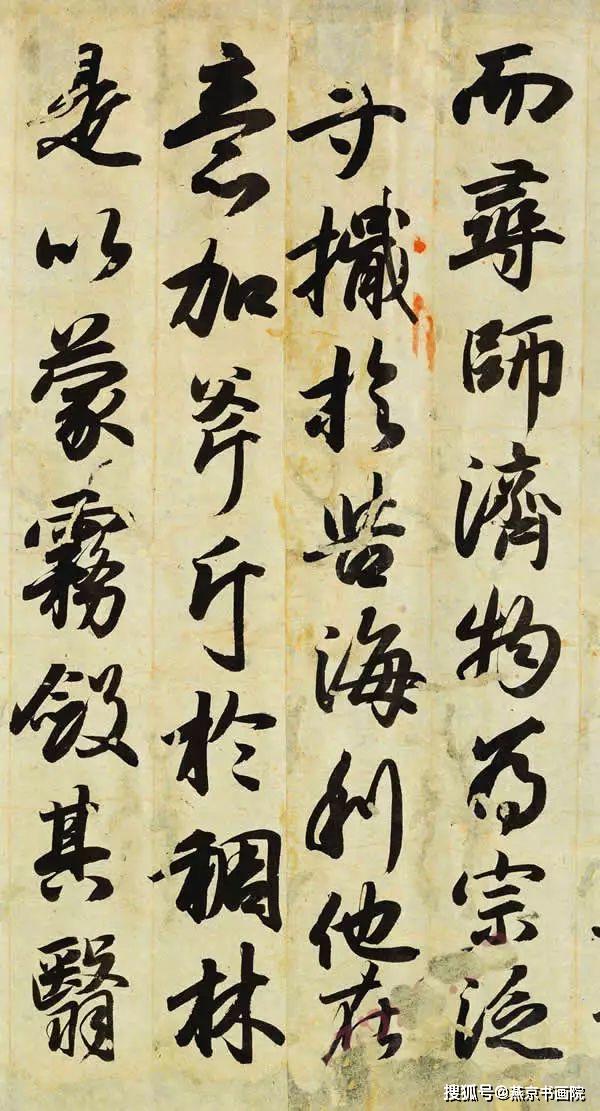 而尋師濟物為宗泛
寸檝於苦海利他在
意加斧斤於稠林
是以蒙霧斂其翳
搜狐号@燕京书画院